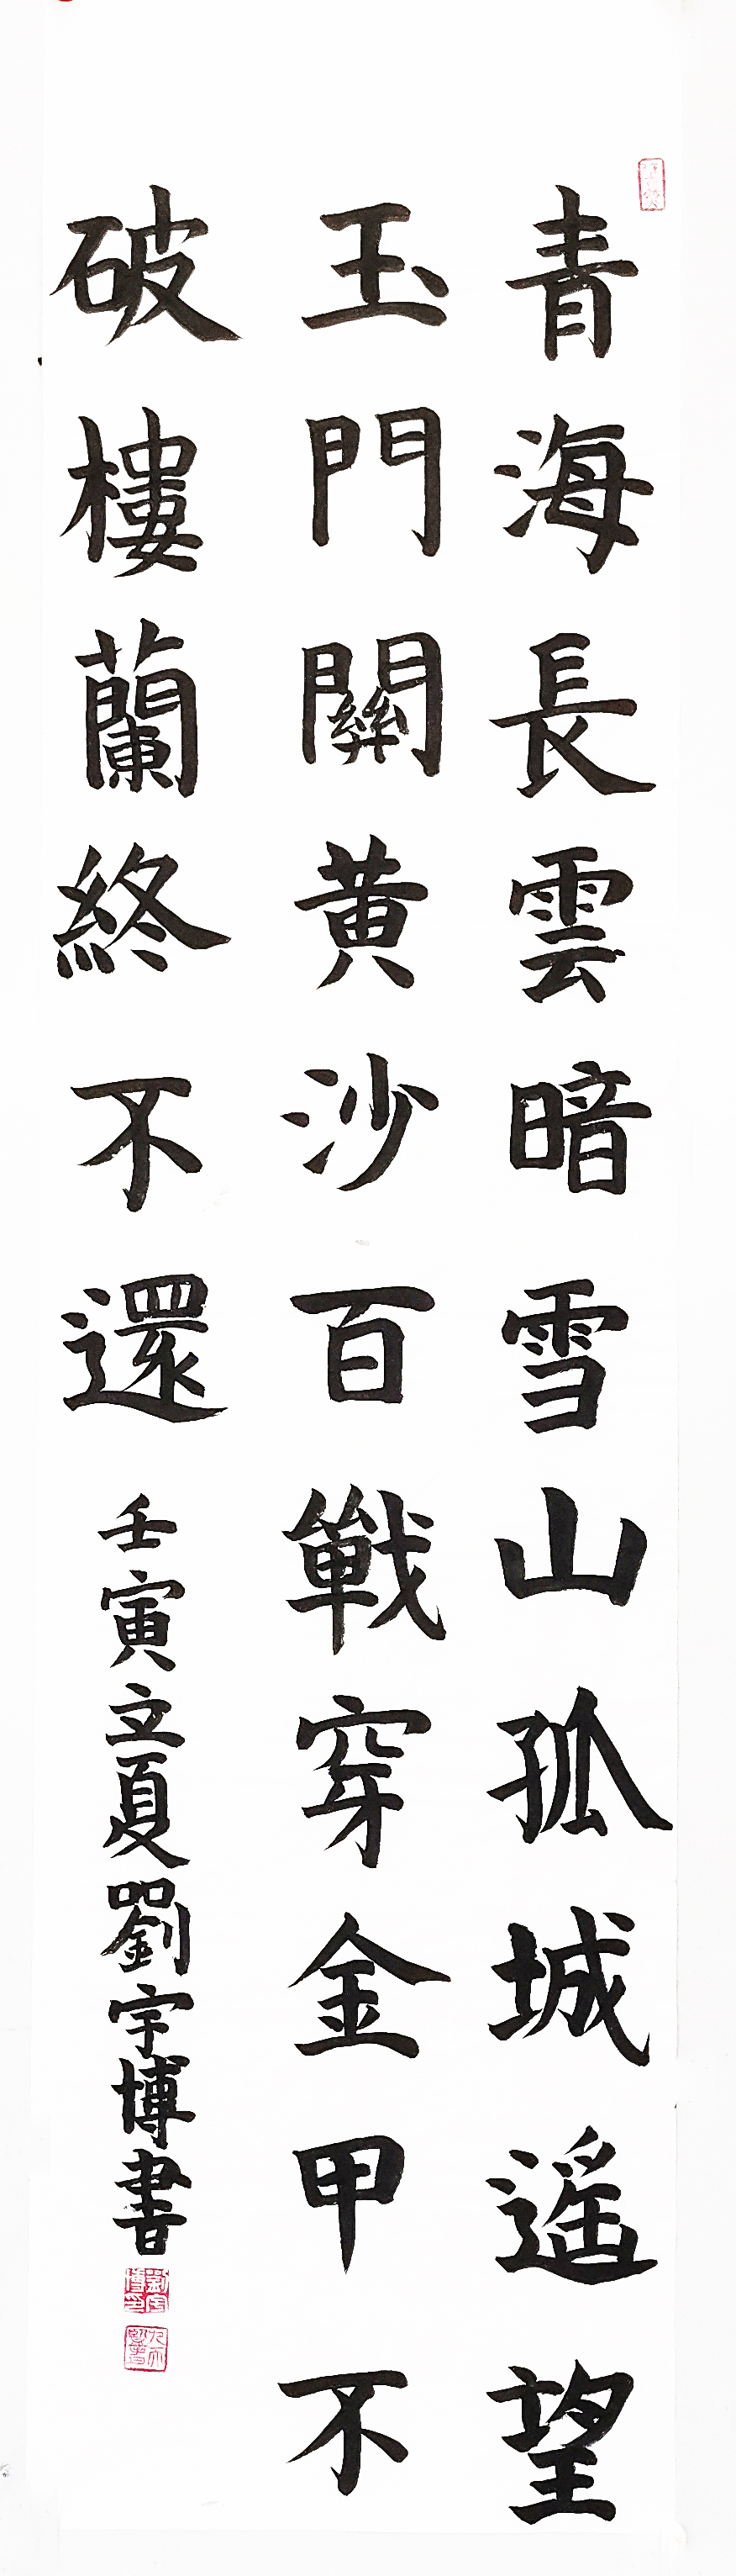 青海長雲暗雪山孤城遥望
玉門關黄沙百戰穿金甲不
破樓蘭終不還
壬寅立夏劉宇博書